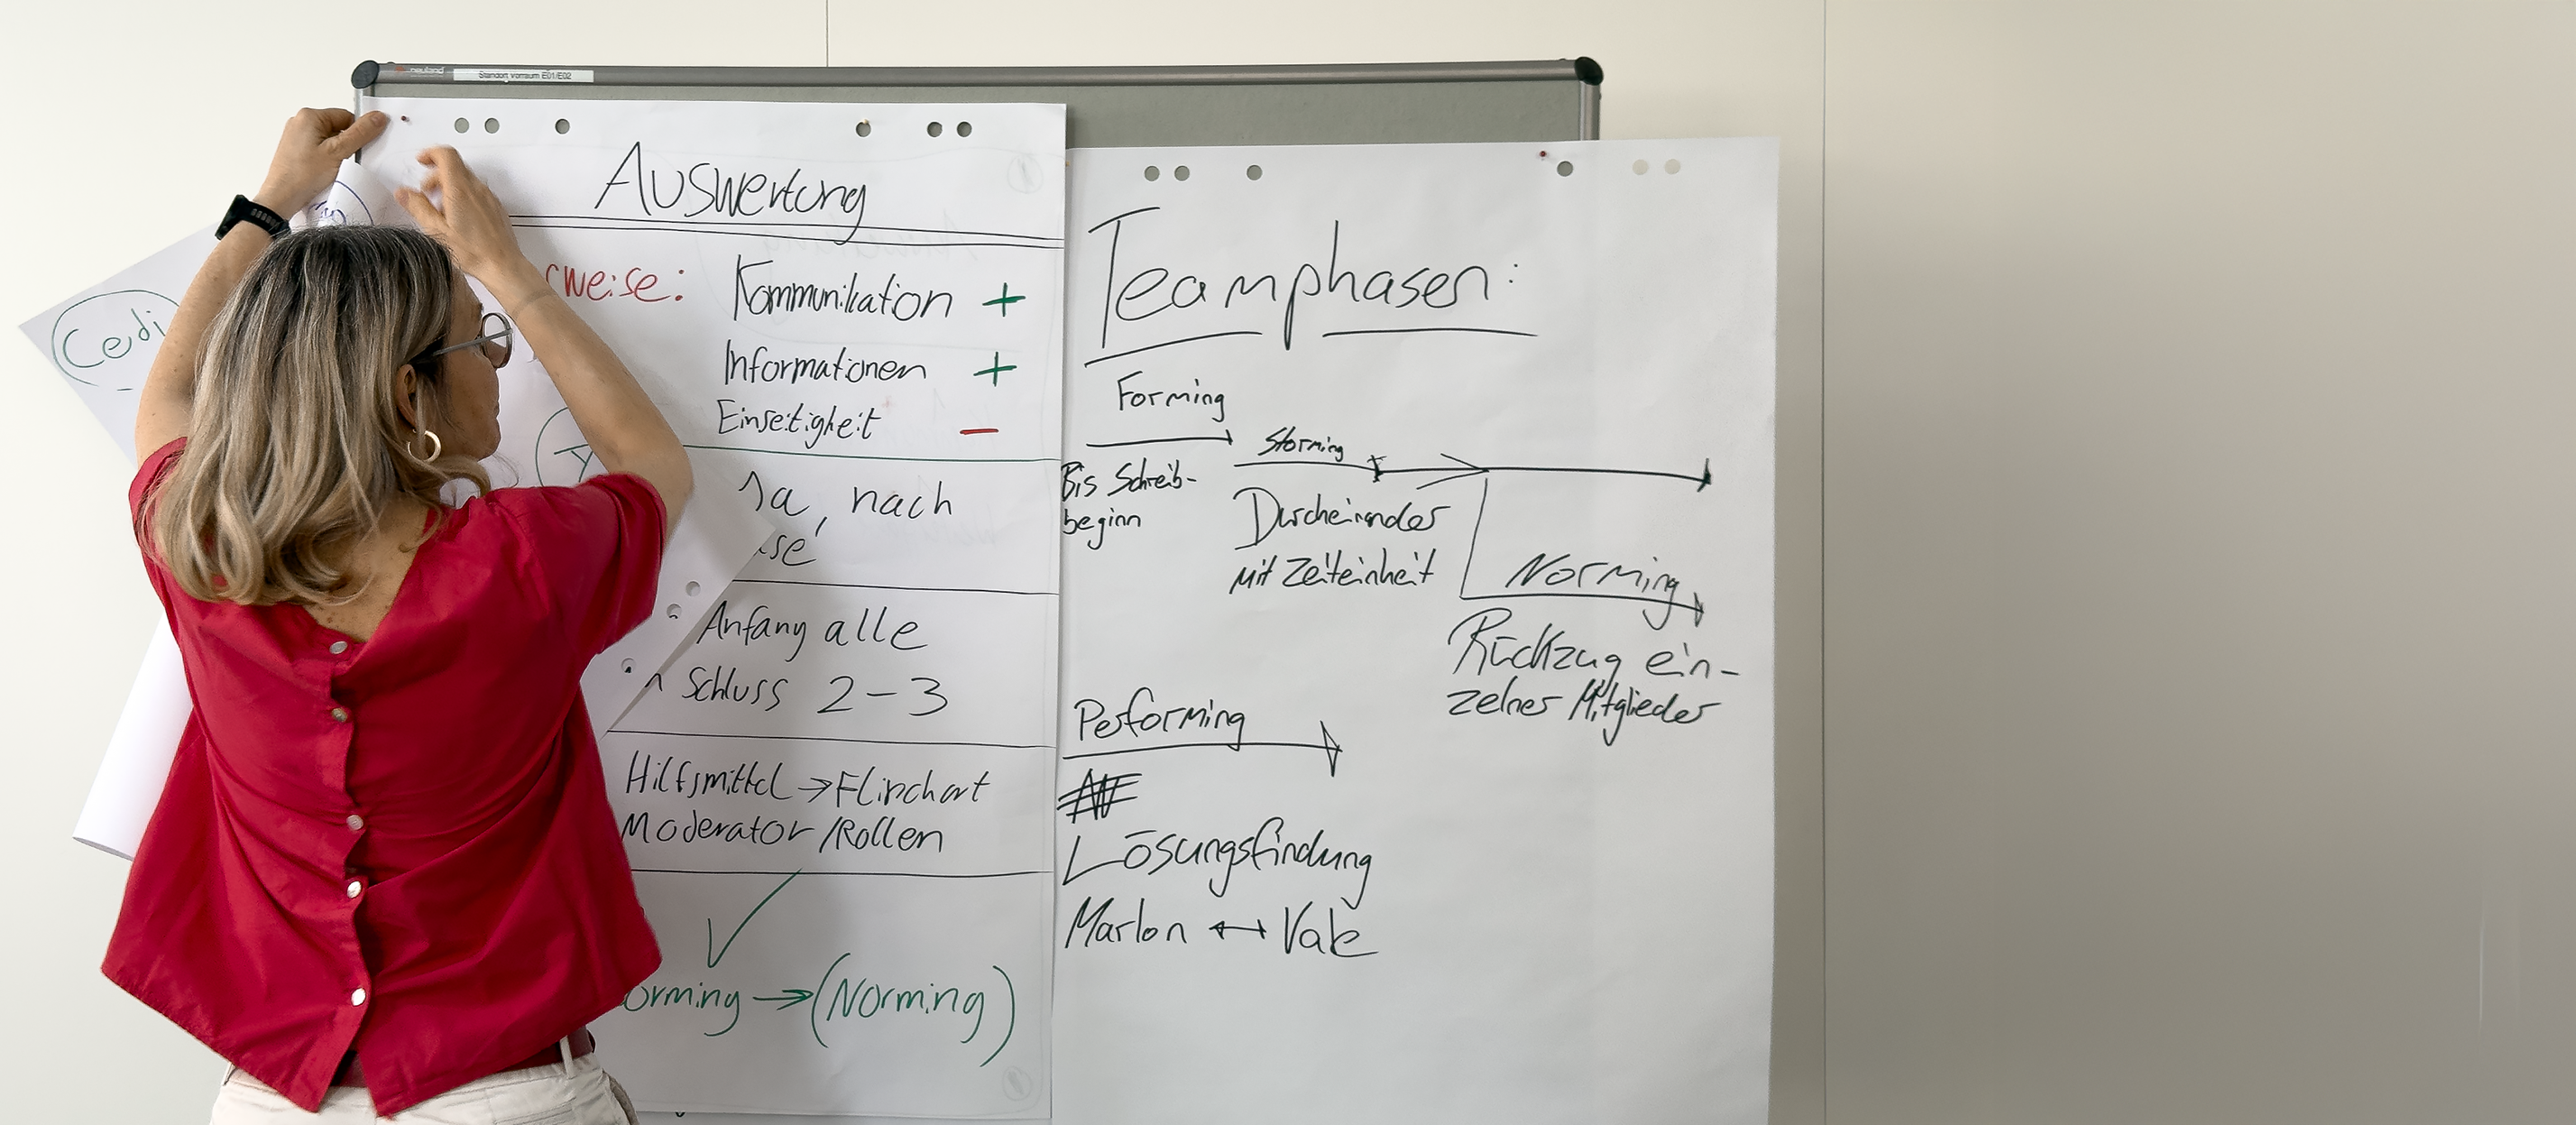 Standort Vorraum E01/E02
Auswertung
rweise: Kommunikation +
Informationen +
Einseitigkeit −
Ja, nach
Anfang alle
Schluss 2-3
Hilfsmittel → Flipchart
Moderator/Rollen
orming → (Norming)
Teamphasen:
Forming
Storming
Bis Schreib-
beginn
Durcheinander
mit Zeiteinheit
Norming
Rückzug ein-
zelner Mitglieder
Performing
Lösungsfindung
Marlon ↔ Vale